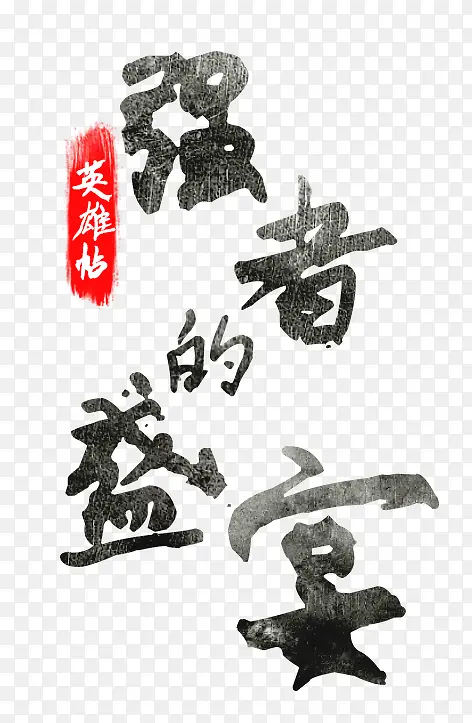 强者的盛宴
英雄帖